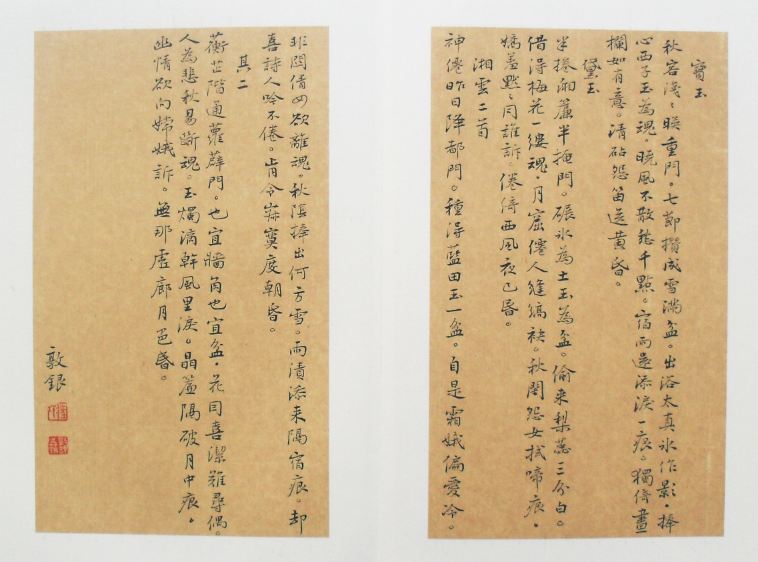 寶玉
秋容淺〻映重門。七節攢成雪滿盆。出浴太真冰作影。捧
心西子玉為魂。曉風不散愁千點。宿雨還添淚一痕。獨倚畫
欄如有意。清砧怨笛送黃昏。
黛玉
半捲湘簾半掩門。碾冰為土玉為盆。偷來梨蕊三分白。
借得梅花一縷魂。月窟僊人縫縞袂。秋閨怨女拭啼痕。
嬌羞默〻同誰訴。倦倚西風夜已昏。
湘雲二首
神僊昨日降都門。種得藍田玉一盆。自是霜娥偏愛冷。
非關倩女欲離魂。秋陰捧出何方雪。雨漬添來隔宿痕。却
喜詩人吟不倦。肯令寂寞度朝昏。
其二
蘅芷階通蘿薜門。也宜牆角也宜盆。花因喜潔難尋偶。
人為悲秋易斷魂。玉燭滴幹風里淚。晶簾隔破月中痕。
幽情欲向嫦娥訴。無那虛廊月色昏。
敦銀